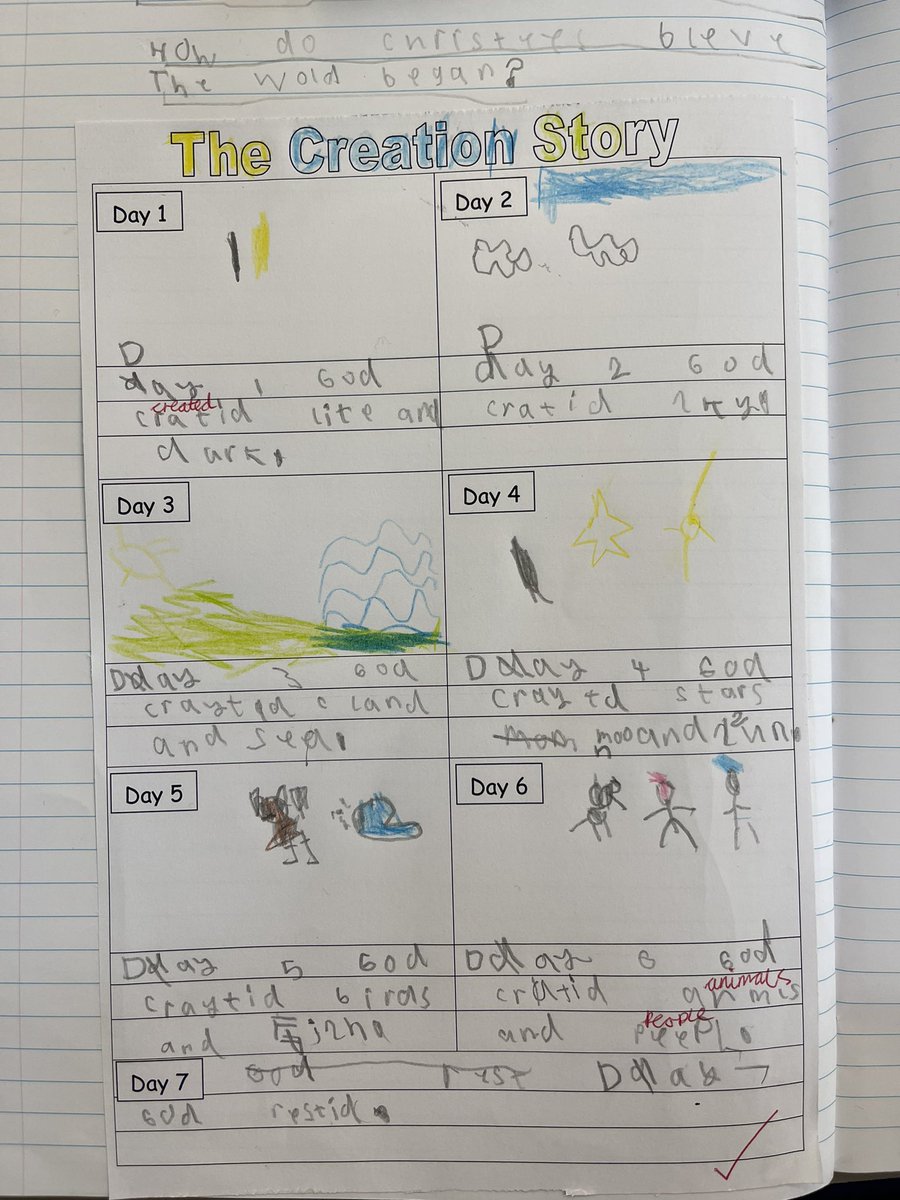 How do christeel bleve
The wold began?
The Creation Story
Day 1
D
day 1 God
created
cratid lite and
dark.
Day 2
D
day 2 God
cratid sky.
Day 3
Dday 3 God
craytid land
and sea.
Day 4
Dday 4 God
craytd stars
mom moo and sun.
n
Day 5
Dday 5 God
craytid birds
and fish
Day 6
Dday 6 God
animals
cratid anmis
people
and peeplo
Day 7
God rest Dday 7
God restid.